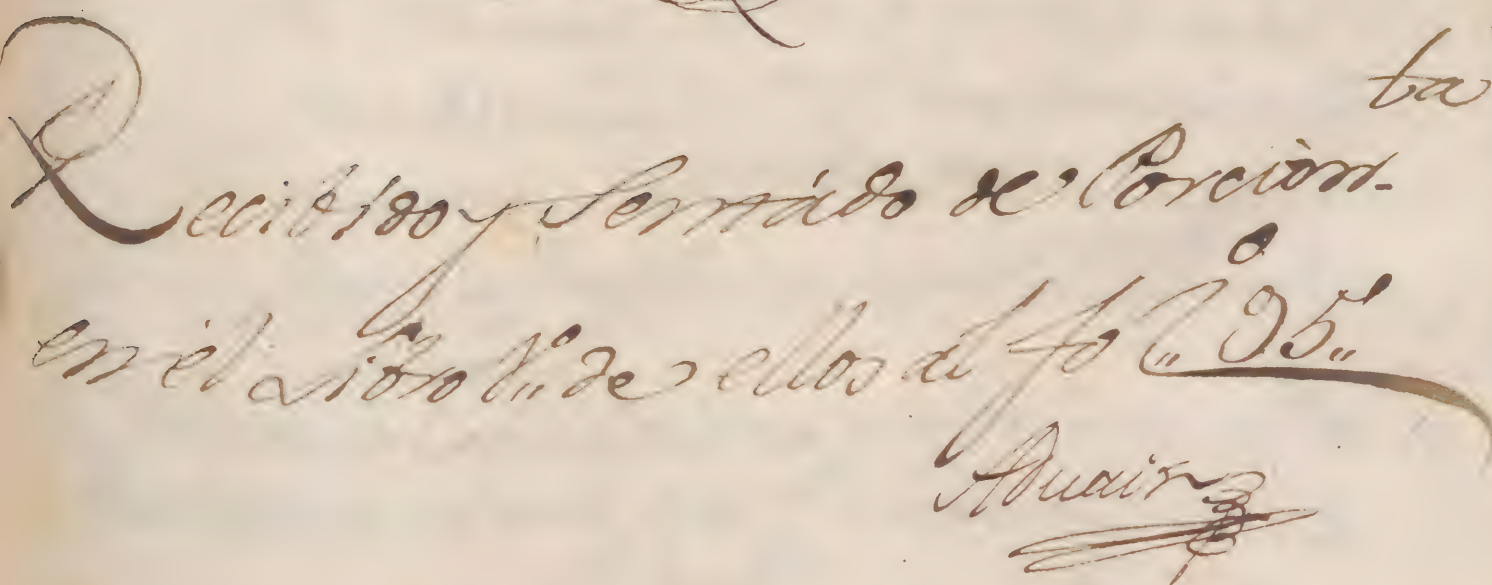 Recibido y Sentado de Porcion.ta
en el Libro 1.º de ellos al fo 95